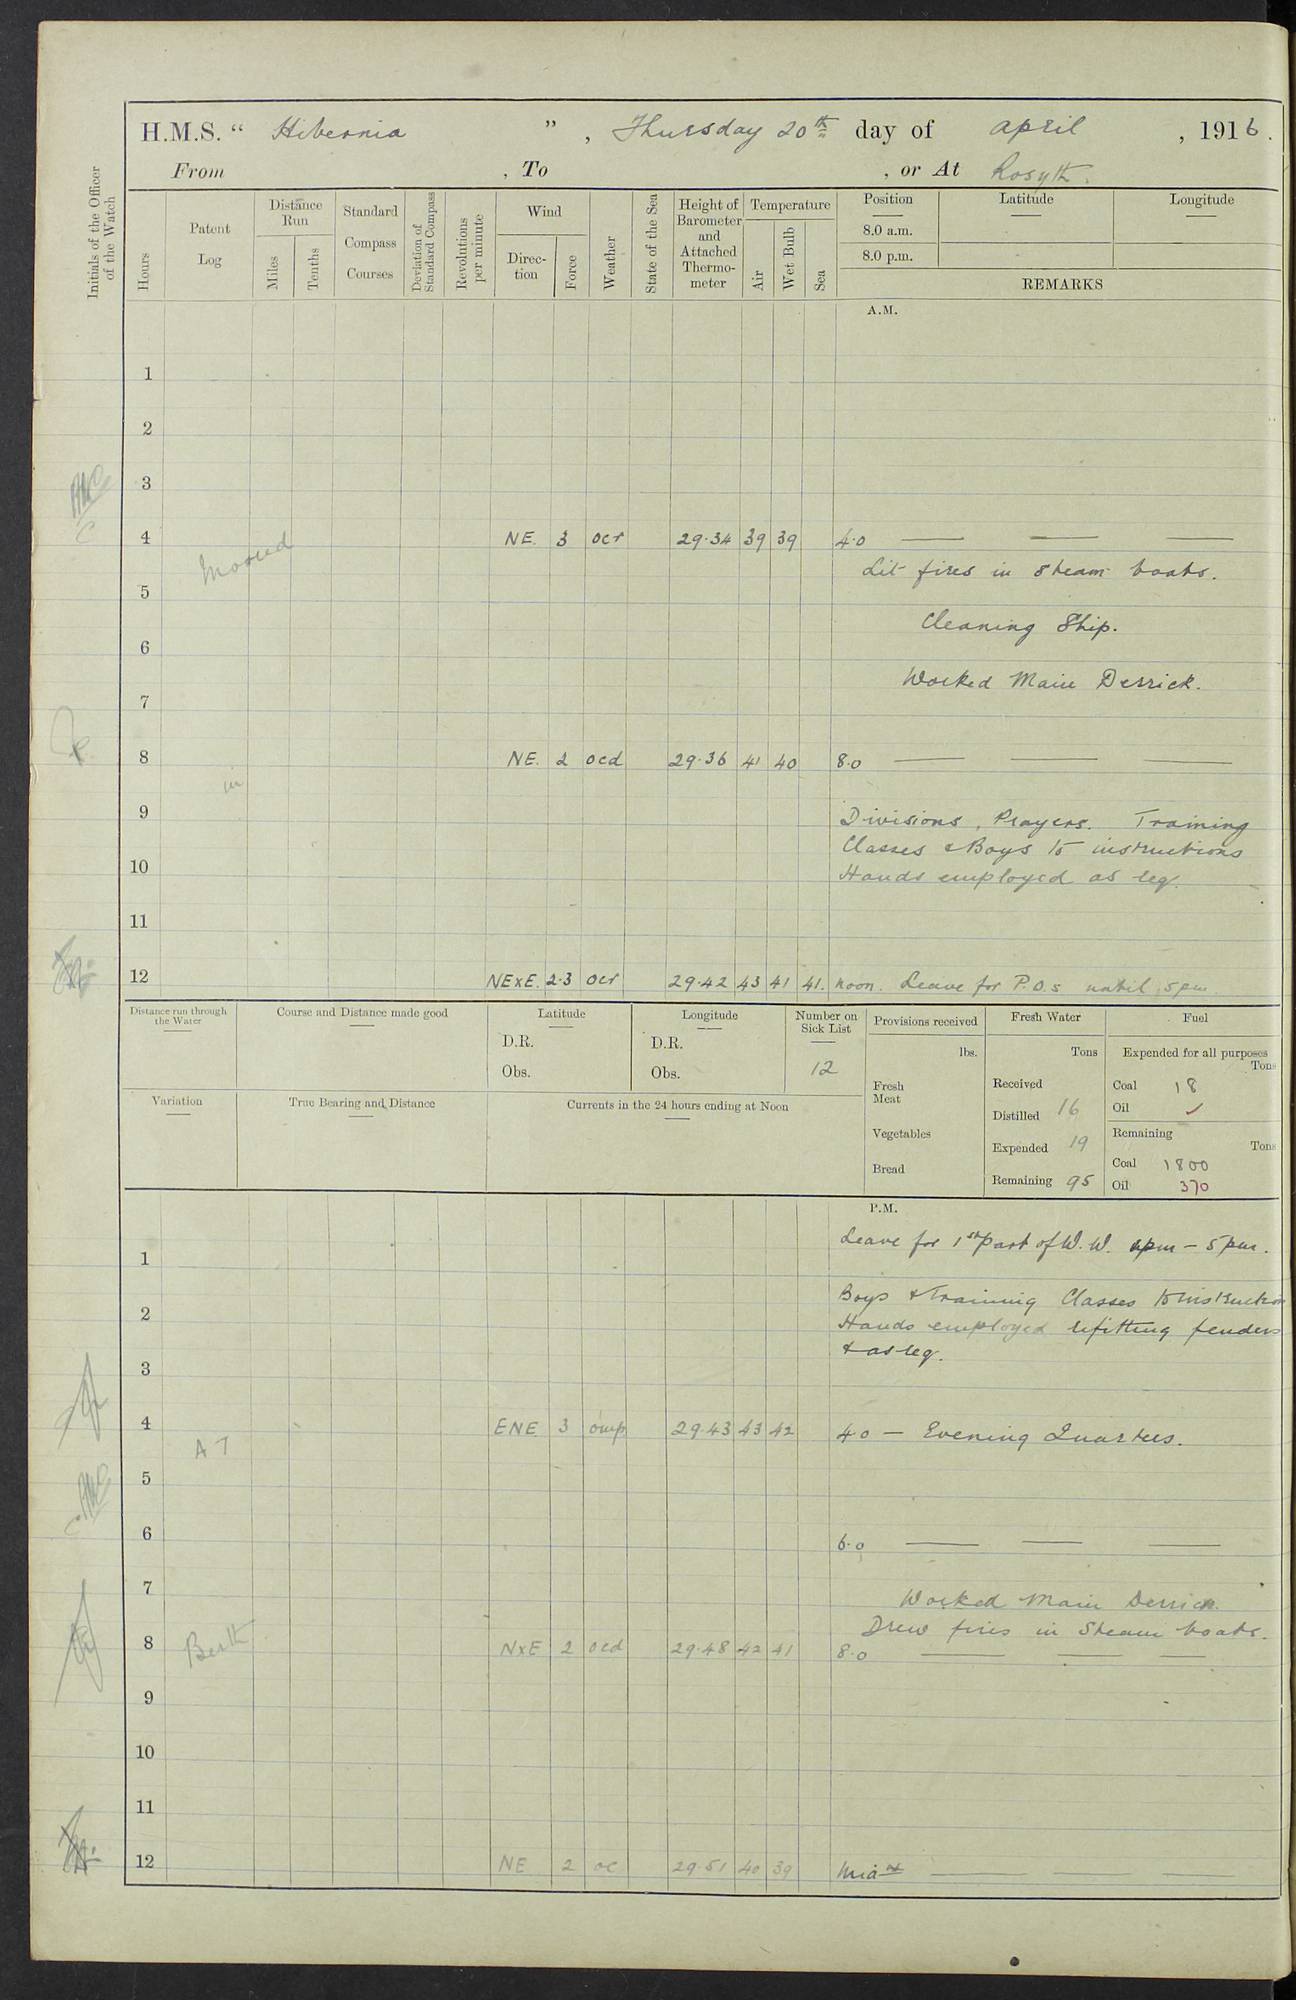 H.M.S. “ Hibernia ” , Thursday 20th day of April , 1916.
From , To , or At Rosyth.
Initials of the Officer of the Watch
Hours
Patent Log
Distance Run
Miles
Tenths
Standard Compass Courses
Deviation of Standard Compass
Revolutions per minute
Wind
Direction
Force
Weather
State of the Sea
Height of Barometer and Attached Thermometer
Temperature
Air
Wet Bulb
Sea
Position
8.0 a.m.
8.0 p.m.
Latitude
Longitude
REMARKS
A.M.
1
2
3
4 NE. 3 ocr 29.34 39 39 4.0 — — —
Moored
Lit fires in steam boats.
5
Cleaning Ship.
6
Worked Main Derrick.
7
8 NE. 2 ocd 29.36 41 40 8.0 — — —
in
9 Divisions, Prayers. Training
Classes & Boys to instructions
10 Hands employed as req.
11
12 NExE. 2.3 ocr 29.42 43 41 41. Noon. Leave for P.O.s until 5pm
Distance run through the Water
Course and Distance made good
Latitude
D.R.
Obs.
Longitude
D.R.
Obs.
Number on Sick List
12
Provisions received
lbs.
Fresh Meat
Vegetables
Bread
Fresh Water
Tons
Received
Distilled 16
Expended 19
Remaining 95
Fuel
Expended for all purposes
Tons
Coal 18
Oil ✓
Remaining
Tons
Coal 1800
Oil 370
Variation
True Bearing and Distance
Currents in the 24 hours ending at Noon
P.M.
Leave for 1st part of W.W. 1pm – 5pm.
1
Boys & Training Classes to instruction
2 Hands employed refitting fenders
& as req.
3
4 ENE 3 omp 29.43 43 42 4.0 — Evening Quarters.
AT
5
6 6.0 — — —
7
Worked Main Derrick.
Drew fires in Steam boats.
8 Berth NxE 2 ocd 29.48 42 41 8.0 — — —
9
10
11
12 NE 2 oc 29.51 40 39 Midt — — —